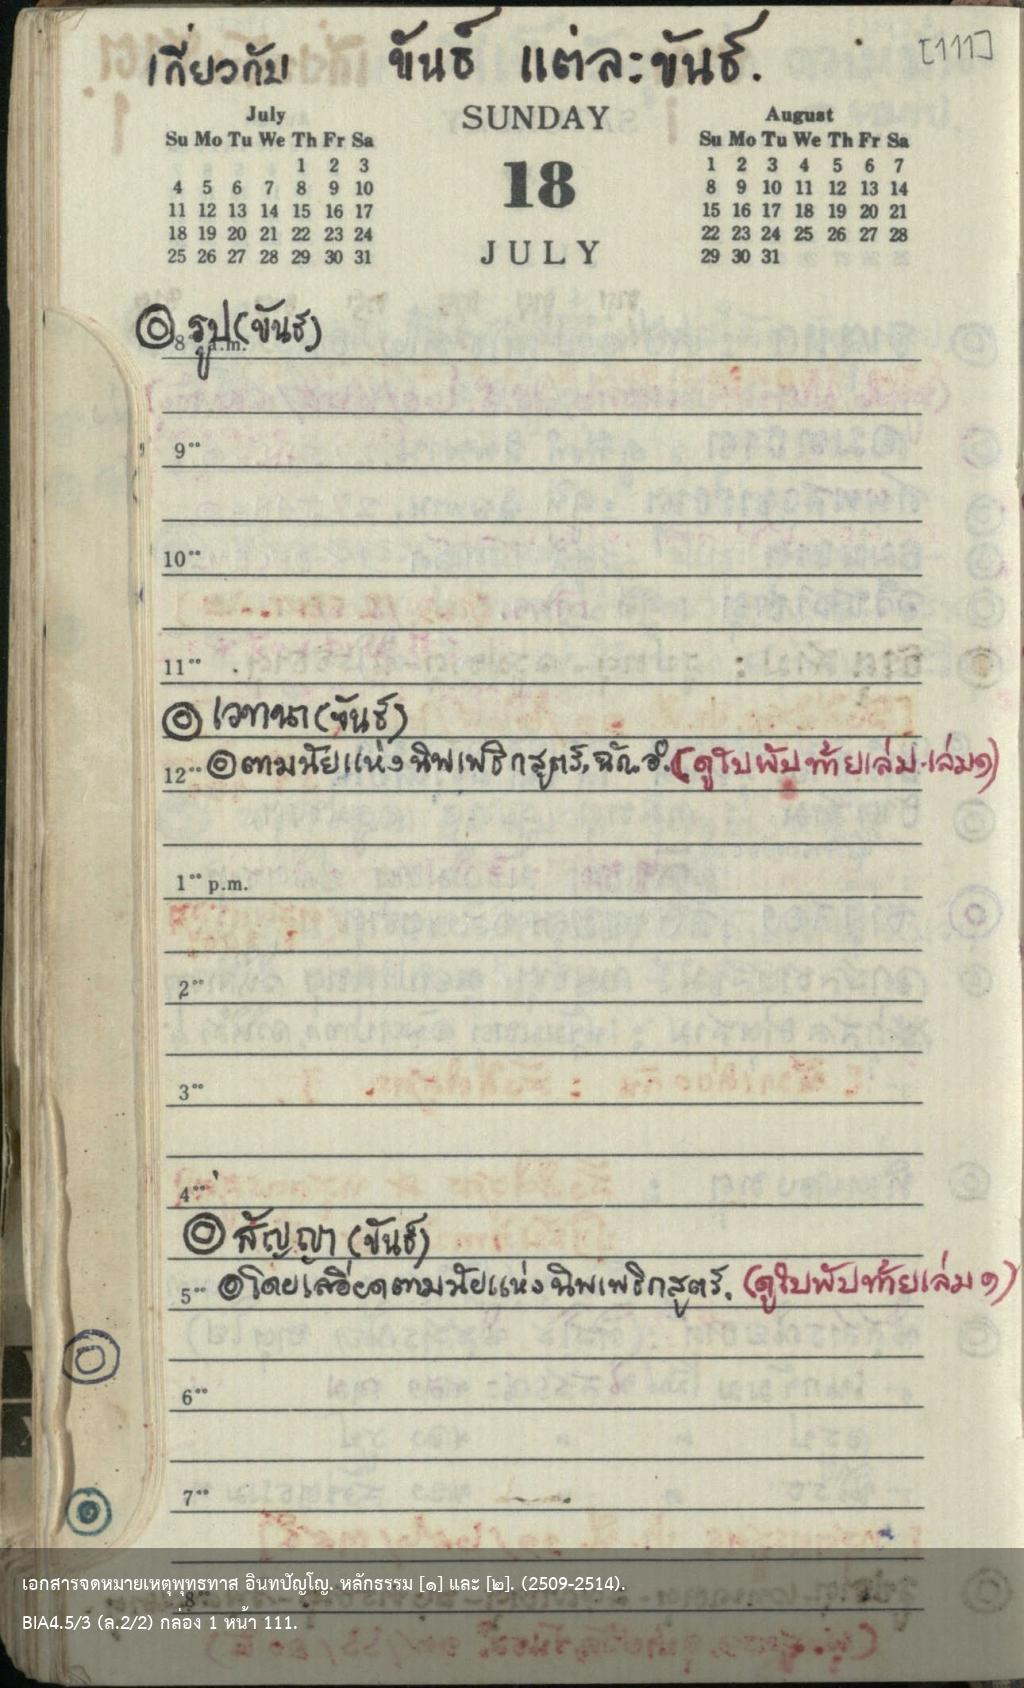 [111]
เกี่ยวกับ ขันธ์ แต่ละขันธ์.
July
Su Mo Tu We Th Fr Sa
1 2 3
4 5 6 7 8 9 10
11 12 13 14 15 16 17
18 19 20 21 22 23 24
25 26 27 28 29 30 31
SUNDAY
18
JULY
August
Su Mo Tu We Th Fr Sa
1 2 3 4 5 6 7
8 9 10 11 12 13 14
15 16 17 18 19 20 21
22 23 24 25 26 27 28
29 30 31
รูป(ขันธ์)
8 a.m.
9
10
11
เวทนา(ขันธ์)
12 ตามนัยแห่งนิพเพธิกสูตร์, ฉัก. อํ. (ดูใบพับท้ายเล่ม-เล่ม๑)
1 p.m.
2
3
4
สัญญา (ขันธ์)
5 โดยละเอียดตามนัยแห่งนิพเพธิกสูตร์. (ดูใบพับท้ายเล่ม ๑)
6
7
8
เอกสารจดหมายเหตุพุทธทาส อินทปัญโญ. หลักธรรม [๑] และ [๒]. (2509-2514).
BIA4.5/3 (ล.2/2) กล่อง 1 หน้า 111.